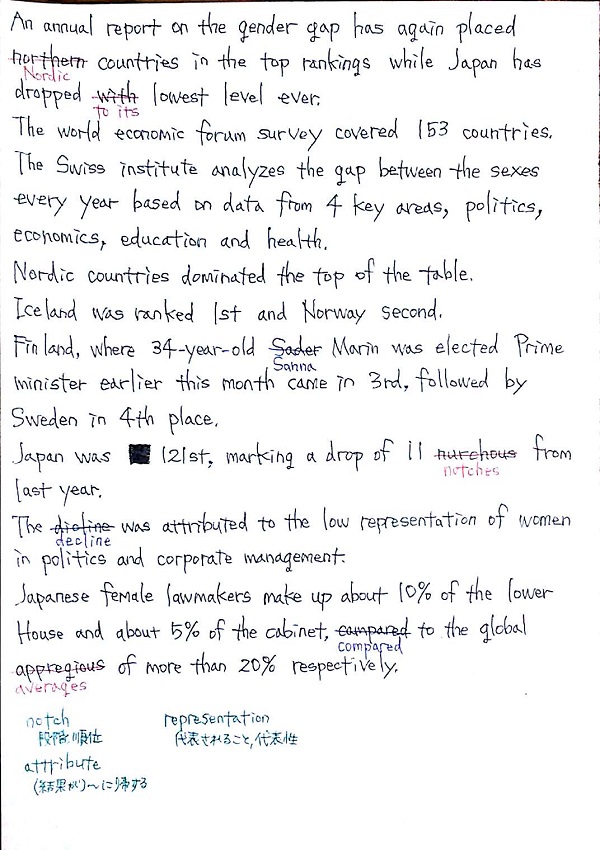 An annual report on the gender gap has again placed
northern countries in the top rankings while Japan has
Nordic
dropped with lowest level ever.
to its
The world economic forum survey covered 153 countries.
The Swiss institute analyzes the gap between the sexes
every year based on data from 4 key areas, politics,
economics, education and health.
Nordic countries dominated the top of the table.
Iceland was ranked 1st and Norway second.
Finland, where 34-year-old Sader Marin was elected Prime
Sanna
minister earlier this month came in 3rd, followed by
Sweden in 4th place.
Japan was 121st, marking a drop of 11 nurchous from
notches
last year.
The dicline was attributed to the low representation of women
decline
in politics and corporate management.
Japanese female lawmakers make up about 10% of the lower
House and about 5% of the cabinet, campared to the global
compared
appregious of more than 20% respectively.
averages
notch representation
段階、順位 代表されること, 代表性
attribute
(結果が)〜に帰する